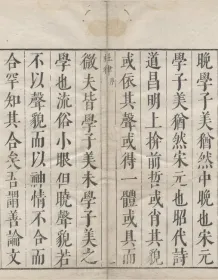 晚學子美猶然中晚也宋
學子美猶然宋元也昭代詩
道昌明上前哲或肖其貌
或依其聲或得一體或具而
杜律 序
微夫皆學子美未學子美之
學也流俗小眼但聲貌若
不以聲貌而以神情不合而
合罕知其合矣吾謂善論文